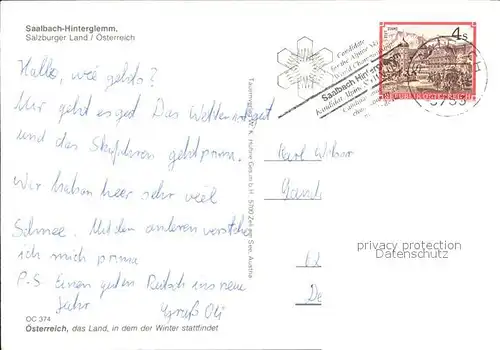 Saalbach-Hinterglemm,
Salzburger Land / Österreich
Hallo, wie gehts?
Mir geht es gut. Das Wetter ist gut
und das Skifahren geht prima.
Wir haben hier sehr viel
Schnee. Mit den anderen versteh
ich mich prima
P-S Einen guten Rutsch ins neue
Jahr Gruß Oli
OC 374
Österreich, das Land, in dem der Winter stattfindet
5700 Zell am See, Austria
Candidate
for the Alpine Ski
World Cham
Saalbach Hinter
Kandidat Alpine
4 S
REPUBLIK ÖSTERREICH
5753
Karl
privacy protection
Datenschutz
De